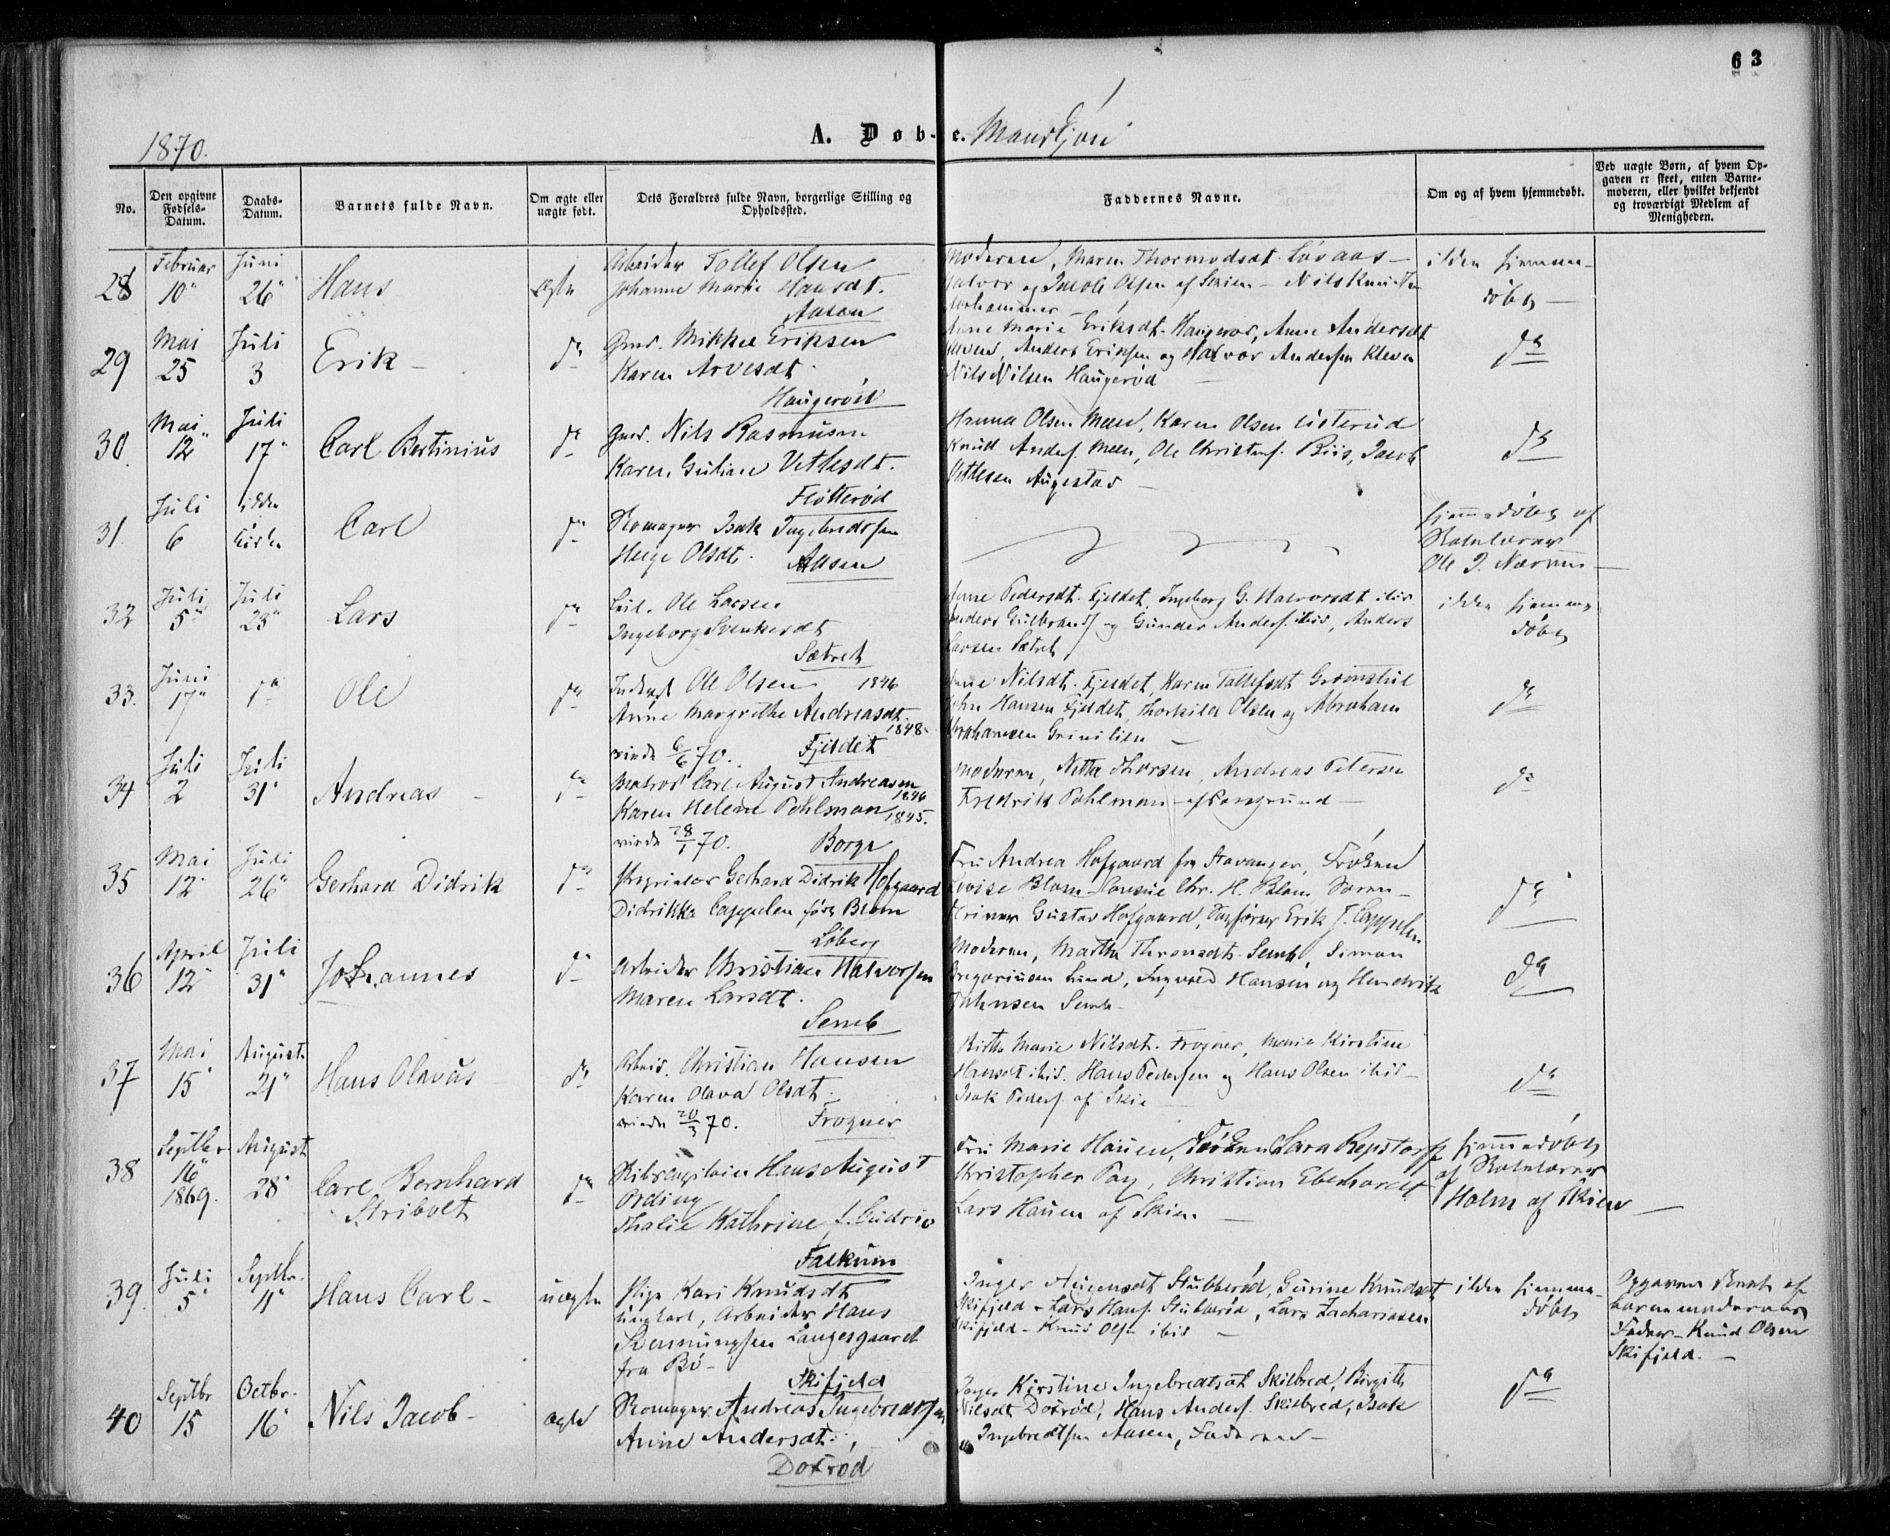 63
1870.
A. Døbte. Mandkjøn
No.
Den opgivne Fødsels-Datum.
Daabs-Datum.
Barnets fulde Navn.
Om ægte eller uægte født.
Dets Forældres fulde Navn, borgerlige Stilling og Opholdssted.
Faddernes Navne.
Om og af hvem hjemmedøbt.
Ved uægte Børn, af hvem Opgaven er skeet, enten Barnemoderen, eller hvilket bekjendt og troværdigt Medlem af Menigheden.
28
Februar 10
Juni 26
Hans
ægte
Arbeider Tollef Olsen
Johanne Marie Hansdt.
Aasen
Moderen, Maren Thormodsdt. Løvaas
Halvor og Jacob Olsen af Skien - Nils Knudsen
ikke hjemmedøbt
29
Mai 25
Juli 3
Erik
do
Gmd. Mikkel Eriksen
Karen Arvesdt.
Haugerød
Anne Marie Eriksdt. Haugerød, Anne Andersdt
Kleven, Anders Eriksen og Halvor Andersen Kleven
Nils Nilsen Haugerød
do
30
Mai 12
Juli 17
Carl Bertinius
do
Gmd. Nils Rasmusen
Karen Guliane Vetlesdt.
Flotterød
Hanna Olsen Meen, Karen Olsen Listerud
Knud Anders. Meen, Ole Christens. Riis, Jacob
Vetlesen Augestad
do
31
Juli 6
ikke kirke
Carl
do
Skomager Isak Ingebredtsen
Helge Olsdt.
Aasen
hjemmedøbt af
Skolelærer
Ole J. Nærum
32
Juli 5
Juli 23
Lars
do
Leil. Ole Larsen
Ingeborg Svenkesdt
Sætret
Anne Pedersdt. Fjeldet, Ingeborg G. Halvorsdt ibid.
Anders Gulbrands. og Gunder Anders. ibid, Anders
Larsen Sætret
ikke hjemmedøbt
33.
Juni 17
do
Ole
do
Inderst Ole Olsen 1846
Anne Margrethe Andreasdt. 1848
viede 6/6 70. Fjeldet
Anne Nilsdt. Fjeldet, Karen Tollefsdt Grønstul
John Hansen Fjeldet, Thorkild Olsen og Abraham
Abrahamsen Grinilien
do
34
Juli 2
Juli 31
Andreas
do
Matros Carl August Andreasen 1846
Karen Helene Pohlman 1845.
viede 28/1 70. Borge
Moderen, Netta Thorsen, Andreas Petersen
Fredrik Pohlman - af Porsgrund
do
35
Mai 12
Juli 26
Gerhard Didrik
do
Proprietær Gerhard Didrik Hofgaard
Didrikka Cappelen født Blom
Løberg
Fru Andrea Hofgaard fra Stavanger, Frøken
Lovise Blom, Consul Chr. H. Blom, Søren
Gustav Hofgaard, Sagfører Erik J. Cappelen
do
36
April 12
Juli 31
Johannes
do
Arbeider Christian Halvorsen
Maren Larsdt.
Semb
Moderen, Marthe Thronsdt. Semb, Simon
Gregoriusen Lund, Ingvald Hansen og Hendrik
Johnsen Semb
do
37
Mai 15
August 21
Hans Olavus
do
Arbeid. Christian Hansen
Karen Olava Olsdt.
viede 20/3 70. Frogner
Birthe Marie Nilsdt. Frogner, Marie Kirstine
Hansdt ibid. Hans Pedersen og Hans Olsen ibid
Isak Peders. af Skien
do
38
Septbr 16 1869.
August 28
Carl Bernhard
Stribolt
do
Skibscapitain Hans August
Ording
Thalie Kathrine f.
Falkum
Fru Marie Hauen, Frøken Lara Repstorff
Christopher Pay, Christian Eberhardt
Lars Hauen af Skien
hjemmedøbt
af Skolelærer
Holm af Skien
39.
Juli 5
Septbr. 11
Hans Carl
uægte
Pige Kari Knudsdt
Ungkarl, Arbeider Hans
Langesgaard
fra Bø
Skifjeld
Inger Augensdt Stubberød, Gurine Knudsdt
Skifjeld - Lars Hans. Stubberød, Lars Zachariasen
Skifjeld - Knud Olsen ibid
ikke hjemmedøbt
Opgaven skeet af
barnemoderens
Fader - Knud Olsen
Skifjeld.
40
Septbr 15
Octbr. 16
Nils Jacob
ægte
Skomager Andreas Ingebredtsen
Anne Andersdt.
Dotrød
Inger Kirstine Ingebredtsdt Skilbred, Birgitte
Nilsdt Dotrød, Hans Anders. Skilbred, Isak
Ingebredtsen Aasen, Faderen
do